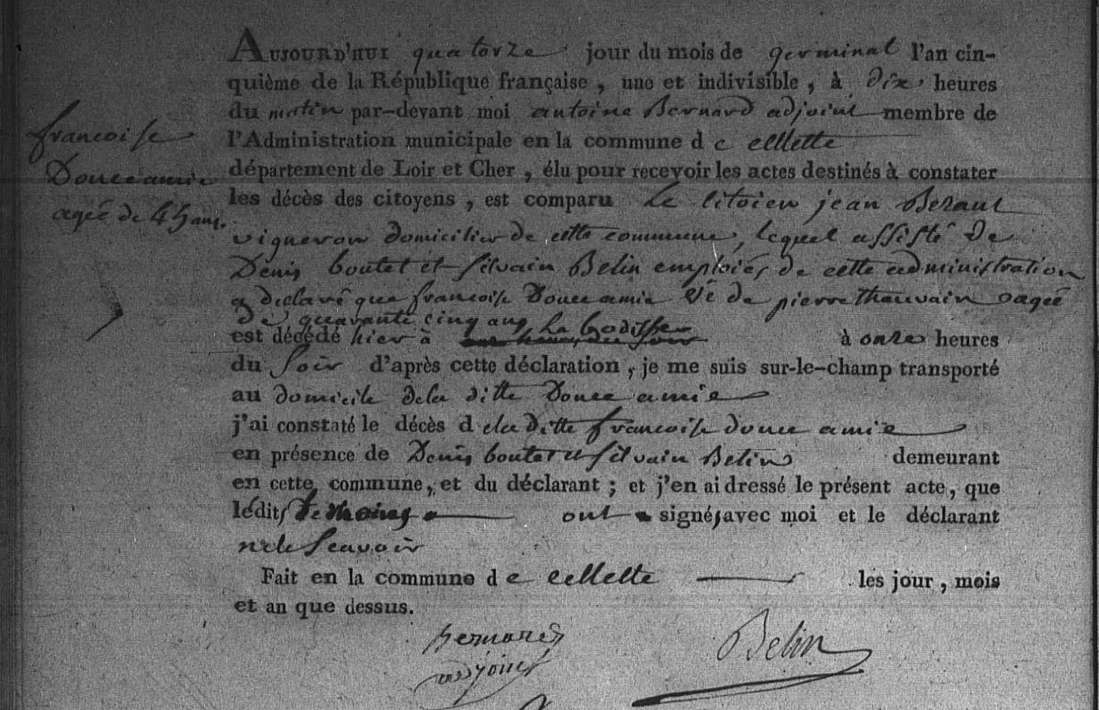 francoise
Douce amie
agée de 45 ans.
AUJOURD'HUI quatorze jour du mois de germinal l'an cin-
quième de la République française, une et indivisible, à dix heures
du matin par-devant moi antoine Bernard adjoint membre de
l'Administration municipale en la commune d e cellette
département de Loir et Cher, élu pour recevoir les actes destinés à constater
les décès des citoyens, est comparu Le Citoien jean Beraut
vigneron domicilier de cette commune, lequel assisté de
Denis boutet et silvain Belin emploiés de cette administration
a declaré que francoise Douce amie Ve de pierre thauvain agée
de quarante cinq ans
est décédé hier à la Godisser à onze heures
du soir d'après cette déclaration, je me suis sur-le-champ transporté
au domicile dela ditte Douce amie
j'ai constaté le décès d ela ditte francoise douce amie
en présence de Denis boutet et silvain Belin demeurant
en cette commune, et du déclarant ; et j'en ai dressé le présent acte, que
lédits temoins ont signés avec moi et le déclarant
ne le scavoir
Fait en la commune d e cellette les jour, mois
et an que dessus.
Bernard Belin
adjoint